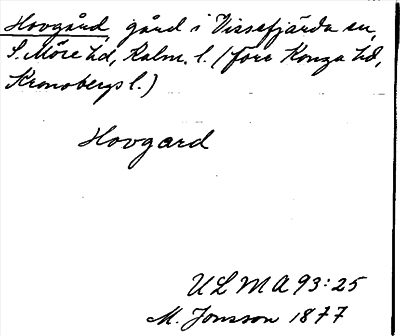 Hovgård, gård i Vissefjärda sn,
S. Möre hd, Kalm. l. (förr Konga hd,
Kronobergs l.)
Hovgard
ULMA 93:25
M. Jonsson 1877